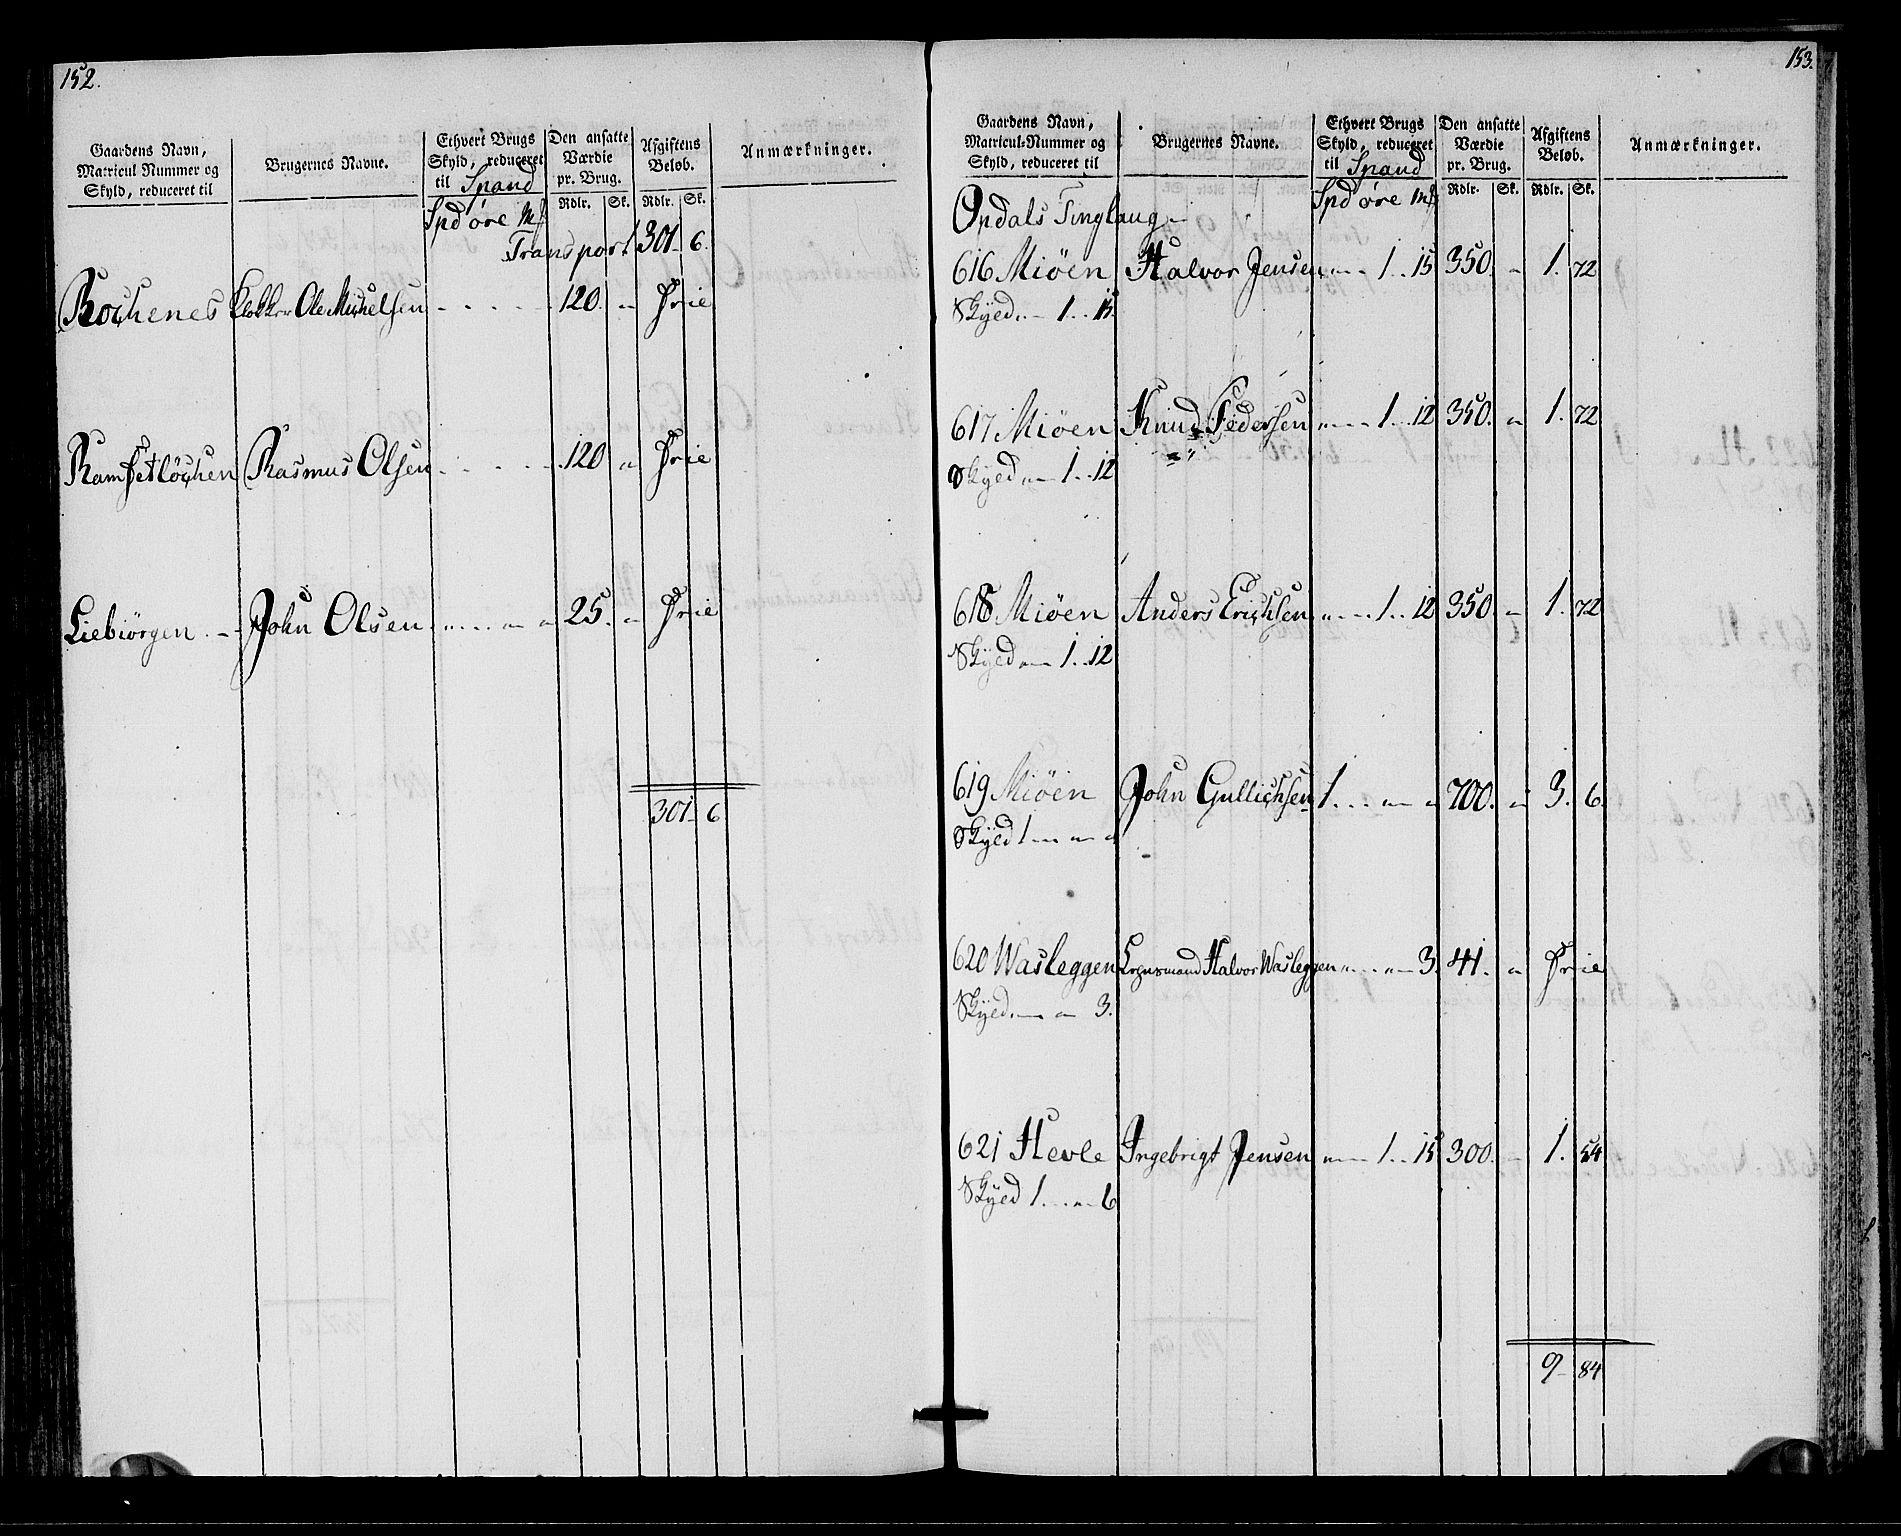 152.
Gaardens Navn, Matricul Nummer og Skyld, reduceret til
Brugernes Navne.
Ethvert Brugs Skyld, reduceret til Spand
Den ansatte Værdie pr. Brug.
Afgiftens Beløb.
Anmærkninger.
Rdlr. Sk. Rdlr. Sk.
Spd øre Mf
Transport 301 6.
Rochenes Klokker Ole Michelsen 120. " Frie
Ramsetløchen Rasmus Olsen 120 " Frie
Liebiörgen John Olsen 25. " Frie
301 6
153.
Gaardens Navn, Matricul-Nummer og Skyld, reduceret til
Brugernes Navne.
Ethvert Brugs Skyld, reduceret til Spand
Den ansatte Værdie pr. Brug.
Afgiftens Beløb.
Anmærkninger.
Rdlr. Sk. Rdlr. Sk.
Spd øre Mf
Opdals Tinglaug
616 Miöen Halvor Jensen " 1 .. 15 350. " 1. 72
Skyed " 1 .. 15.
617 Miöen Knud Pedersen " 1 .. 12 350. " 1. 72
Skyed " 1 .. 12
618 Miöen Anders Erichsen " 1 .. 12 350 " 1. 72
Skyed " 1 .. 12
619 Miöen John Gullichsen 1 " " 700. " 3. 6.
Skyed 1 " "
620 Wasleggen Lensmand Halvor Wasleggen " " 3. 41. " Frie
Skyed " " 3.
621 Hevle Ingebrigt Jensen " 1 .. 15 300. " 1. 54
Skyed 1 " 6
9 84